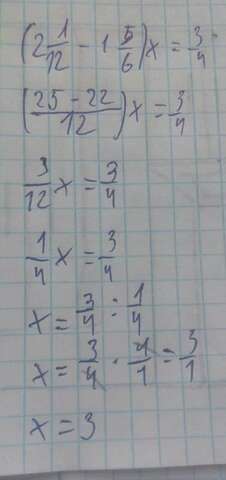 (2 1/12 - 1 5/6)x = 3/4
((25 - 22)/12)x = 3/4
3/12 x = 3/4
1/4 x = 3/4
x = 3/4 : 1/4
x = 3/4 · 4/1 = 3/1
x = 3